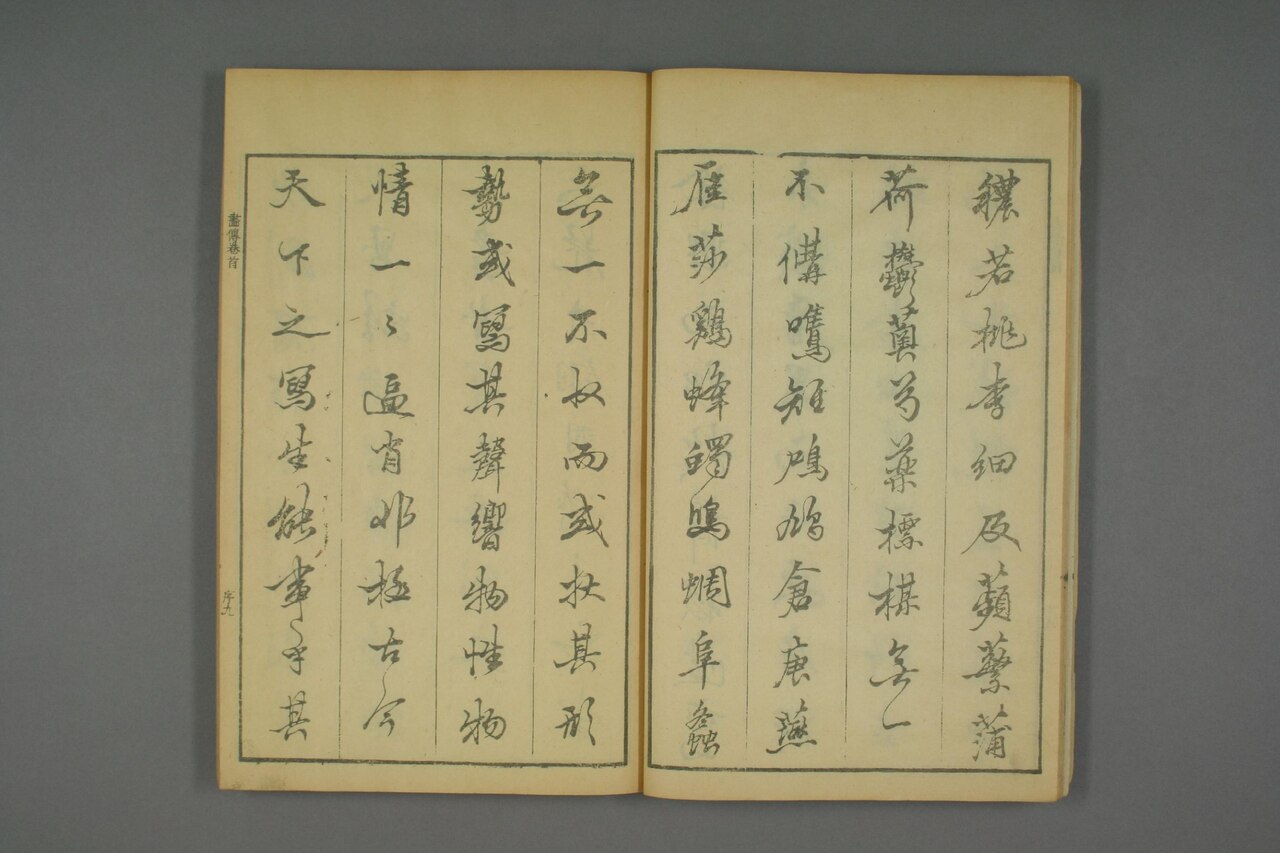 穠若桃李細及蘋蘩蒲
荷鬱薁芍藥標梅無一
不備鳴雉鳲鳩倉庚燕
雁莎鷄蜂蠋鴟蜩阜螽
無一不收而或狀其形
勢或寫其聲響物性物
情一〻逼肖非極古今
天下之寫生能事乎其
畵傳卷首
序九